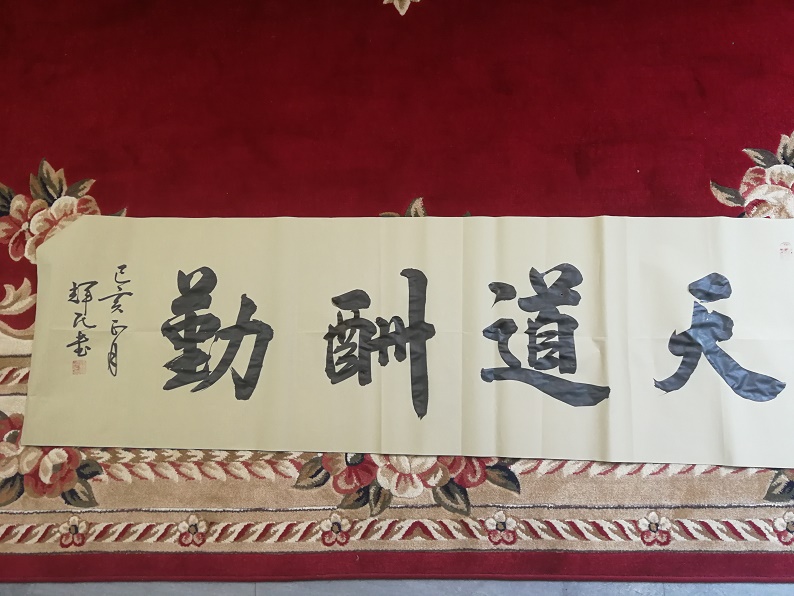 天道酬勤
己亥正月
辉民书